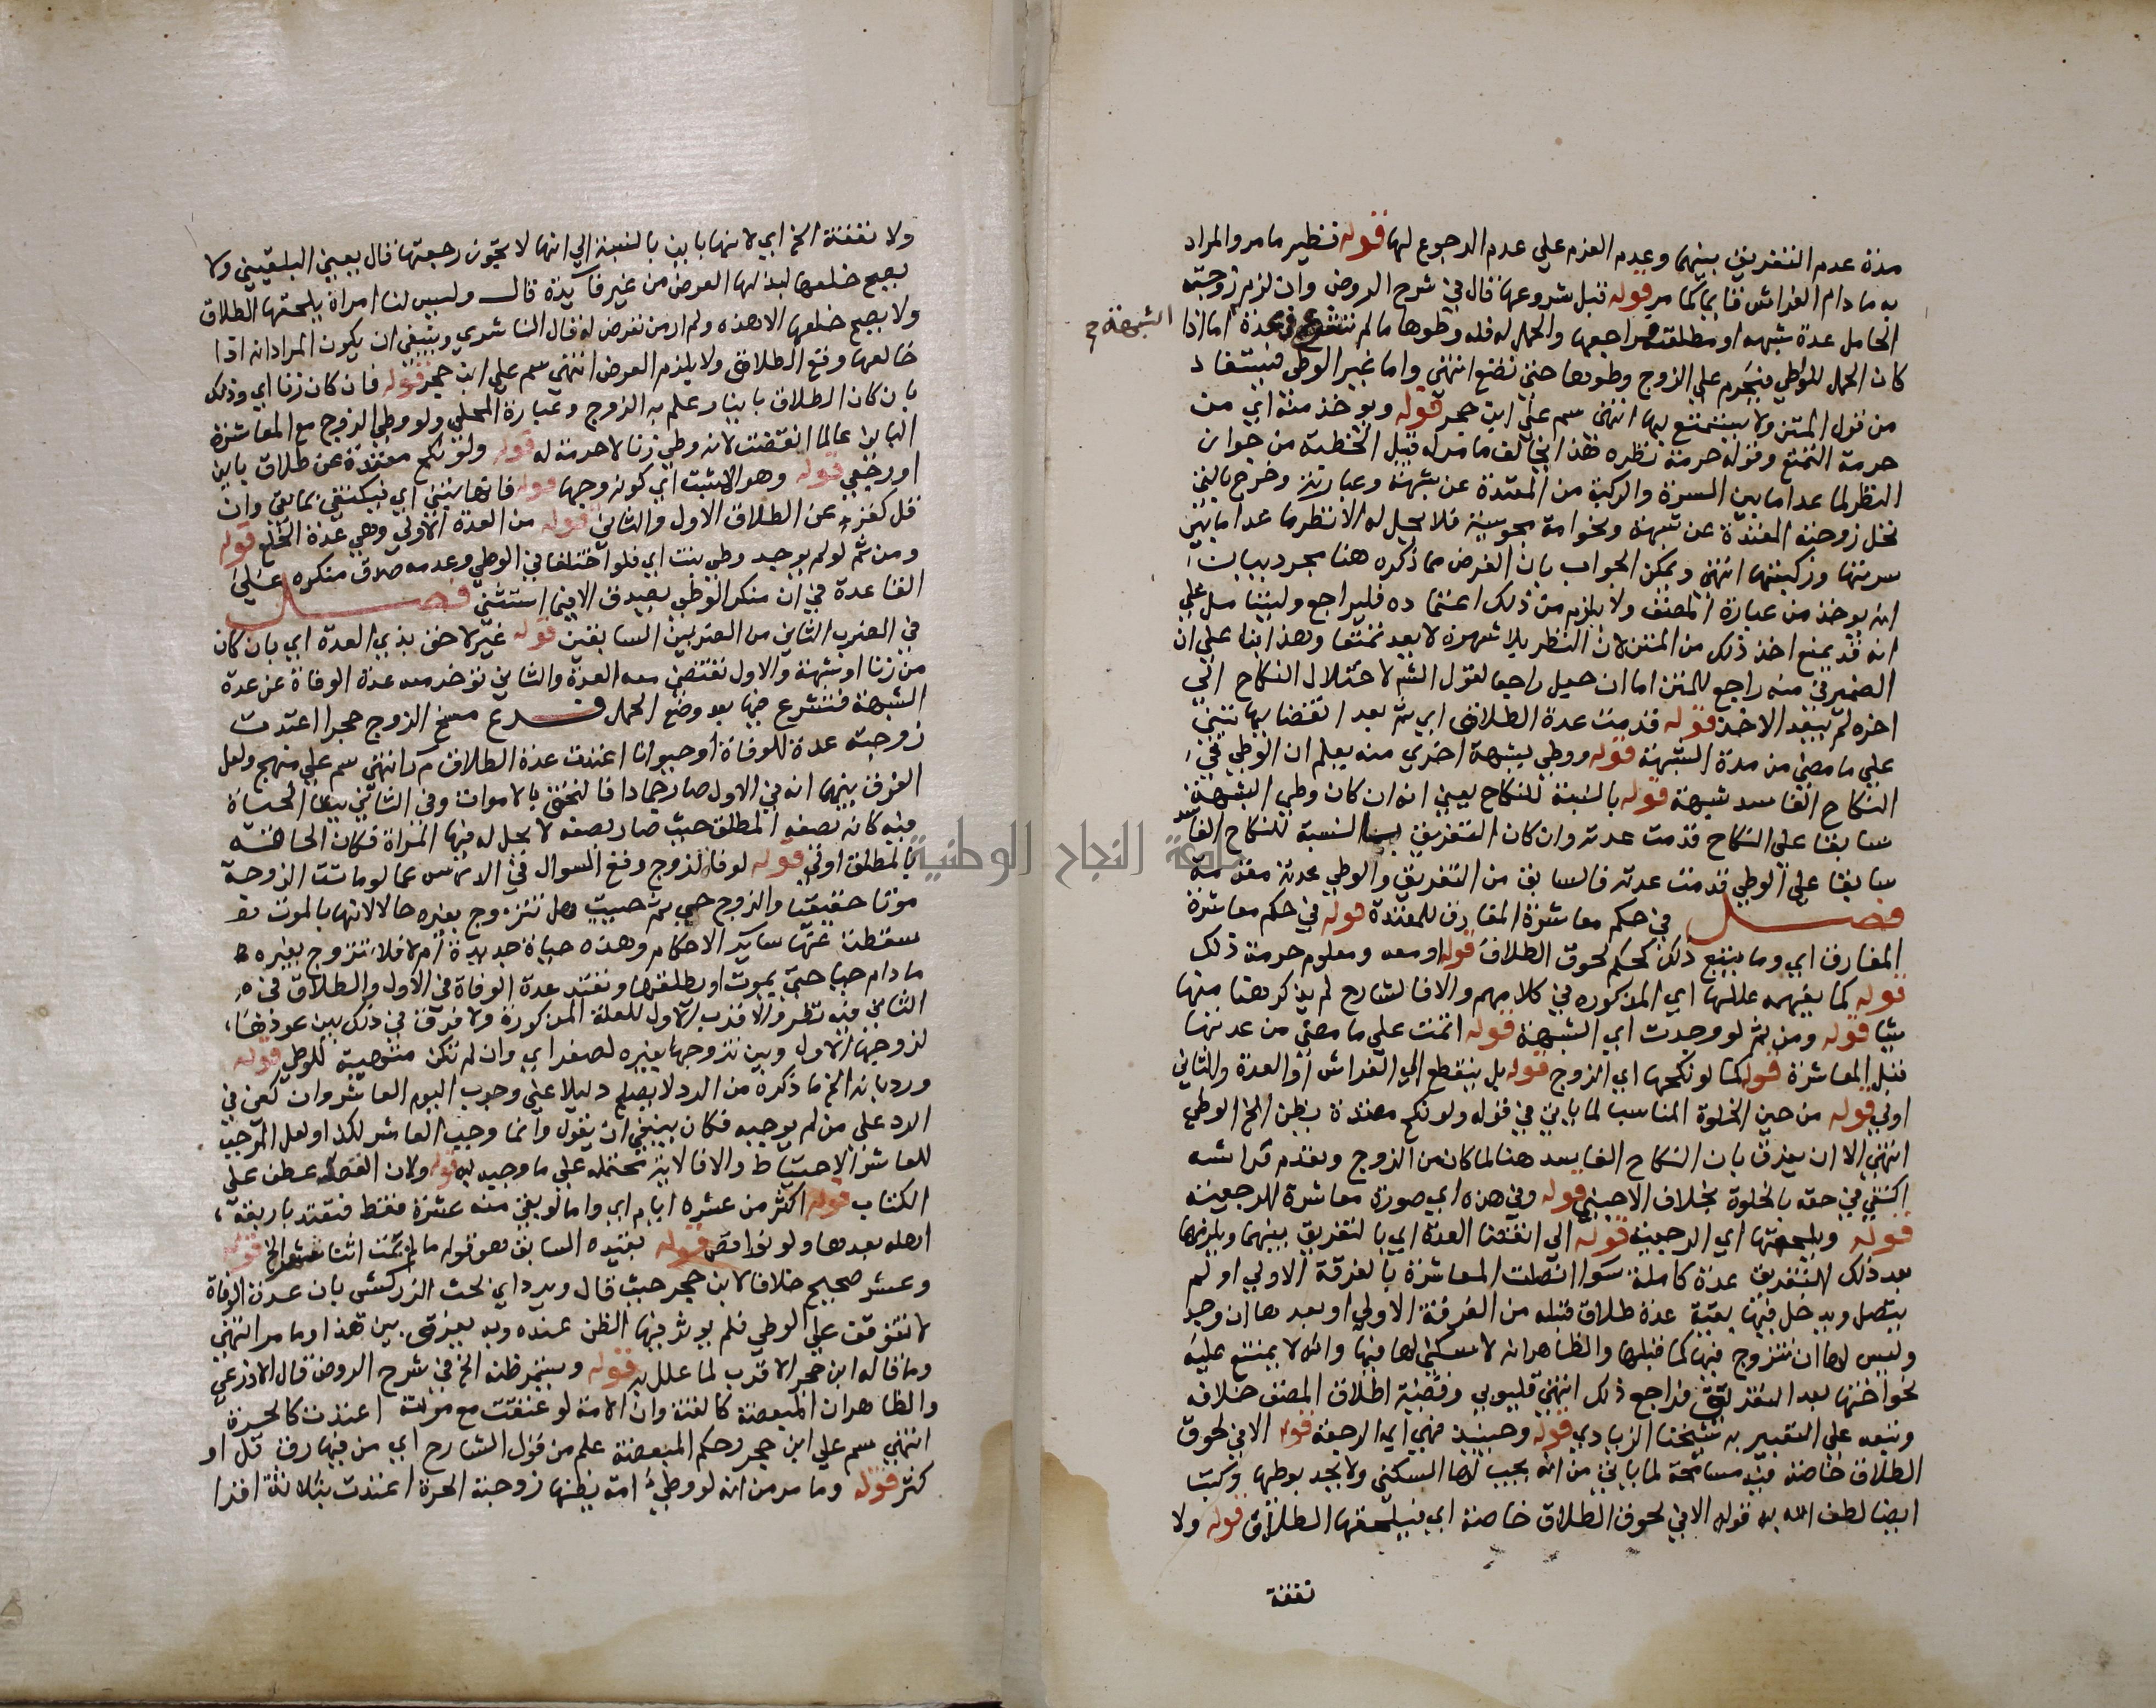 مدة عدم التفريق بينهما وعدم العزم علي عدم الرجوع لها قوله نظير ما مر والمراد
به ما دام الفراش قايما كما مر قوله قبل شروعها قال في شرح الروض وان لزم زوجته
الحامل عدة شبهه او مطلقته مراجعها والحمل له فله وطوها ما لم تشرع في عدة اما اذا
الشبهة
كان الحمل للواطي فيحرم علي الزوج وطوها حتي تضع انتهي واما غير الوطي فيستفاد
من قول المتن ولا يستمتع بها انتهي سم علي ابن حجر قوله ويوخذ منه اي من
حرمة التمتع وقوله حرمة نظره هذا يخالف ما مر له قبيل الخطبة من جواز
النظر لما عدا ما بين السرة والركبة من المعتدة عن شبهة وعبارته وخرج بالتي
تحل زوجته المعتدة عن شبهة ونحو امة مجوسية فلا يحل له الا نظر ما عدا ما بين
سرتها وركبتها انتهي ويمكن الجواب بان الغرض مما ذكره هنا مجرد بيان
انه يوخذ من عبارة المصنف ولا يلزم من ذلك اعتماده فليراجع وليتامل علي
انه قد يمنع اخذ ذلك من المتن لان النظر بلا شهوة لا يعد تمتعا وهذا بنا علي ان
الضمير في منه راجع للمتن اما ان جعل راجعا لقول الش لاختلال النكاح الي
اخره لم يبعد الاخذ قوله قدمت عدة الطلاق اي ثم بعد انقضايها تبني
علي ما مضي من مدة الشبهة قوله ووطي بشبهة اخري منه يعلم ان الوطي في
النكاح الفاسد شبهة قوله بالنسبة للنكاح يعني انه ان كان وطي الشبهة
سابقا علي النكاح قدمت عدته وان كان التفريق بالنسبة للنكاح الفاسد
سابقا علي الوطي قدمت عدته فالسابق من التفريق والوطي عدته مقدمة
فصل في حكم معاشرة المفارق للمعتدة قوله في حكم معاشرة
المفارق اي وما يتبع ذلك كحكم لحوق الطلاق قوله او معه ومعلوم حرمة ذلك
قوله كما يفهمه عللها اي المذكوره في كلامهم والا فالشارح لم يذكر هنا منها
شيا قوله ومن ثم لو وجدت اي الشبهة قوله اتمت علي ما مضي من عدتها
قبل المعاشرة قوله كما لو نكحها اي الزوج قوله بل ينقطع اي الفراش او العدة والثاني
اولي قوله من حين الخلوة المناسب لما ياتي في قوله ولو نكح معتدة بظن الخ الوطي
انتهي الا ان يفرق بان النكاح الفاسد هنا لما كان من الزوج وتقدم فراشه
اكتفي في حقه بالخلوة بخلاف الاجنبي قوله وفي هذه اي صورة معاشرة الرجعية
قوله ويلحقها اي الرجعية قوله الي انقضا العدة اي بالتفريق بينهما ويلزمها
بعد ذلك التفريق عدة كاملة سوا اتصلت المعاشرة بالفرقة الاولي او لم
يتصل ويدخل فيها بقية عدة طلاق قبله من الفرقة الاولي او بعدها ان وجد
وليس لها ان تتزوج فيها كما قبلها والظاهر انه لا سكني لها فيها وانه لا يمتنع عليه
نحو اختها بعد التفريق فراجع ذلك انتهي قليوبي وقضية اطلاق المصنف خلافه
وتبعه علي التعبير به شيخنا الزيادي قوله وحينيذ فهي اي الرجعة قوله الا في لحوق
الطلاق خاصة فيه مسامحة لما ياتي من انه يجب لها السكني ولا يحد بوطيها وكتب
ايضا لطف الله به قوله الا في لحوق الطلاق خاصة اي فيلحقها الطلاق قوله ولا
نفقة
ولا نفقة الخ اي لانها باين بالنسبة الي انها لا يجوز رجعتها قال يعني البلقيني ولا
يصح خلعها لبذلها العوض من غير فايدة قال وليس لنا امراة يلحقها الطلاق
ولا يصح خلعها الا هذه ولم ار من تعرض له قال الناشري وينبغي ان يكون المراد انه اذا
خالعها وقع الطلاق ولا يلزم العوض انتهي سم علي ابن حجر قوله فان كان زنا اي وذلك
بان كان الطلاق باينا وعلم به الزوج وعبارة المحلي ولو وطي الزوج مع المعاشرة
الباين عالما انقضت لانه وطي زنا لا حرمة له قوله ولو نكح معتدة عن طلاق باين
او رجعي قوله وهو الاثبت اي كونه وجها قوله فانها تبني اي فيكتفي بما بقي وان
قل كقرء عن الطلاق الاول والثاني قوله من العدة الاولي وهي عدة الخلع قوله
ومن ثم لو لم يوجد وطي بنت اي فلو اختلفا في الوطي وعدمه صدق منكره علي
القاعدة في ان منكر الوطي يصدق الا فيما استثني فصل
في الضرب الثاني من الضربين السابقين قوله غير لاحق بذي العدة اي بان كان
من زنا او شبهة والاول تنقضي معه العدة والثاني توخر معه عدة الوفاة عن عدة
الشبهة فتشرع فيها بعد وضع الحمل فرع مسخ الزوج حجرا اعتدت
زوجته عدة للوفاة او حيوانا اعتدت عدة الطلاق م ر انتهي سم علي منهج ولعل
الفرق بينهما انه في الاول صار جمادا فالتحق بالاموات وفي الثاني بقا الحياة
فيه كانه نصفه المطلق حيث صار بصفة لا يحل له فيها المراة فكان الحاقه
بالمطلق اولي قوله لوفاة زوج وقع السوال في الدرس عما لو ماتت الزوجة
موتا حقيقيا والزوج حي ثم حييت وهل تتزوج بغيره حالا لانها بالموت
سقطت عنها ساير الاحكام وهذه حياة جديدة ام لا فلا تتزوج بغيره
ما دام حيا حتي يموت او يطلقها وتعتد عدة الوفاة في الاول والطلاق في
الثاني فيه نظر والاقرب الاول للعلة المذكورة ولا فرق في ذلك بين عودها
لزوجها الاول وبين تزوجها بغيره لصغر اي وان لم تكن متهيية للوطي قوله
ورد بانه الخ ما ذكره من الرد لا يصلح دليلا علي وجوب اليوم العاشر وان كفي في
الرد علي من لم يوجبه فكان ينبغي ان يقول وانما وجب العاشر لكذا ولعل الموجب
للعاشر الاحتياط والا فالاية محتمله علي ما وجهه به قوله ولان القصد عطف علي
الكتاب قوله اكثر من عشرة ايام اي واما لو بقي منه عشرة فقط فتعتد باربعة
اهله بعدها ولو نواقص قوله بقيده السابق هو قوله ما لم تمت اثنا عشر الخ قوله
وعشر صحيح خلافا لابن حجر حيث قال ويرد اي بحث الزركشي بان عدة الوفاة
لا تتوقف علي الوطي فلم يوثر فيها الظن عنده وبه يفرق بين هذا وما مر انتهي
وما قاله ابن حجر الاقرب لما علل به قوله ويستمر ظنه الخ في شرح الروض قال الاذرعي
والظاهر ان المبعضة كالقنة وان الامة لو عتقت مع موته اعتدت كالحرة
انتهي سم علي ابن حجر وحكم المبعضة علم من قول الشارح اي من فيها رق قل او
كثر قوله وما مر من انه لو وطي امة يظنها زوجته الحرة اعتدت بثلاثة اقرا
جامعة النجاح الوطنية